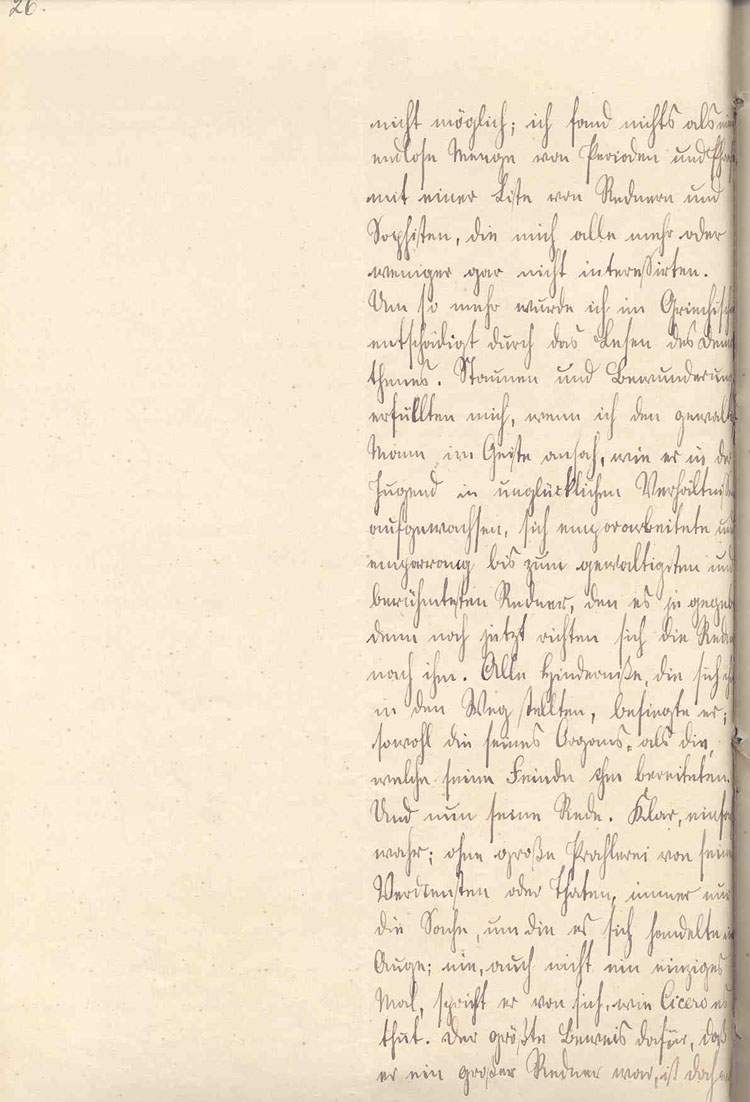 26.
nicht möglich; ich fand nichts als
endlose Menge von Perioden und
mit einer Liste von Rednern und
Sophisten, die mich alle mehr oder
weniger gar nicht interessirten.
Um so mehr wurde ich im Griechisch
entschädigt durch das Lesen des Demos
thenes. Staunen und Bewunderung
erfüllten mich, wenn ich den gewalt
Mann im Geiste ansah, wie er in der
Jugend in unglücklichen Verhältniß
aufgewachsen, sich emporarbeitete und
emporrang bis zum gewaltigsten und
berühmtesten Redner, den es je gegeb
denn noch jetzt richten sich die Red
nach ihm. Alle Hinderniße, die sich ih
in den Weg stellten, besiegte er;
sowohl die seines Organs, als die,
welche seine Feinde ihm bereiteten.
Und nun seine Rede. Klar, einfa
wahr; ohne große Prahlerei von sein
Verdiensten oder Thaten, immer nur
die Sache, um die es sich handelte im
Auge; nie, auch nicht ein einziges
Mal, spricht er von sich, wie Cicero es
thut. Der größte Beweis dafür, daß
er ein großer Redner war, ist doch